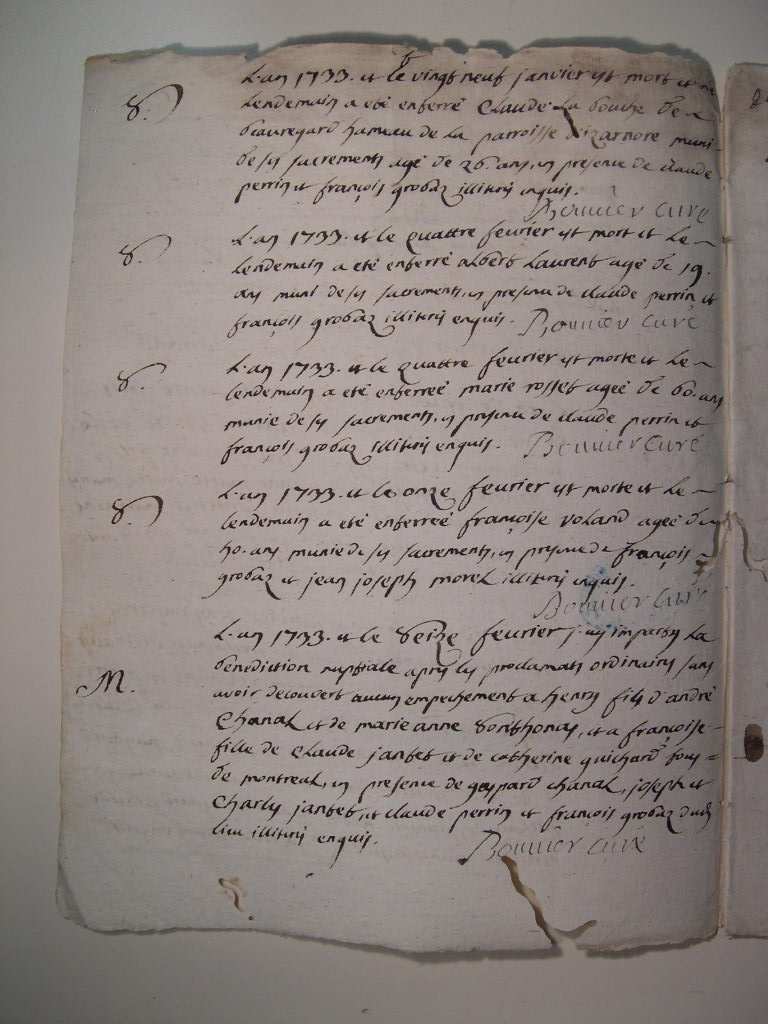 L'an 1733. et le vingt neuf janvier est mort et le
S. lendemain a eté enterré Claude La bouche de
beauregard hameau de La parroisse d'izarnore muni
de ses sacrements agé de 26. ans, en presence de claude
perrin et françois grobaz illiterés enquis.
Bonnier curé
L'an 1733. et le quattre fevrier est mort et Le
S. lendemain a eté enterré albert Laurent agé de 19.
ans muni de ses sacrements, en presence de claude perrin et
françois grobaz illiterés enquis. Bonnier curé
L'an 1733. et le quattre fevrier est morte et Le
S. lendemain a eté enterreé marie rosset ageé de 60. ans
munie de ses sacrements, en presence de claude perrin et
françois grobaz illiterés enquis. Bonnier curé
L'an 1733. et le onze fevrier est morte et Le
S. lendemain a eté enterreé françoise voland ageé de
40. ans munie de ses sacrements, en presence de françois
grobaz et jean joseph morel illiterés enquis.
Bonnier curé
L'an 1733. et le seize fevrier j'ay imparty La
M. benediction nuptiale apres les proclamats ordinaires sans
avoir decouvert aucun empechement a henry fils d'andré
Chanal et de marie anne sonthonas, et a françoise
fille de Claude jantet et de catherine guichard tous
de montreal, en presence de gaspard chanal, joseph et
Charles jantet, et claude perrin et françois grobaz dudit
lieu illiterés enquis.
Bonnier curé